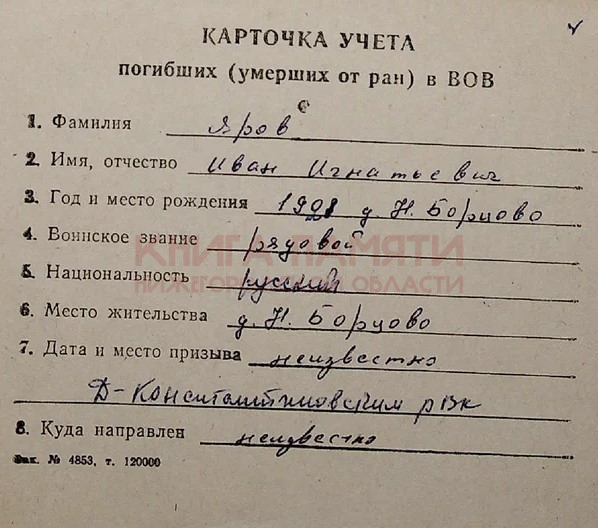 КАРТОЧКА УЧЕТА
погибших (умерших от ран) в ВОВ
1. Фамилия Яров
2. Имя, отчество Иван Игнатьевич
3. Год и место рождения 1908 д. Н. Борцово
4. Воинское звание рядовой
КНИГА ПАМЯТИ
5. Национальность русский
НИЖЕГОРОДСКОЙ ОБЛАСТИ
6. Место жительства д. Н. Борцово
7. Дата и место призыва неизвестно
Д-Константиновским рвк
8. Куда направлен неизвестно
Зак. № 4853, т. 120000